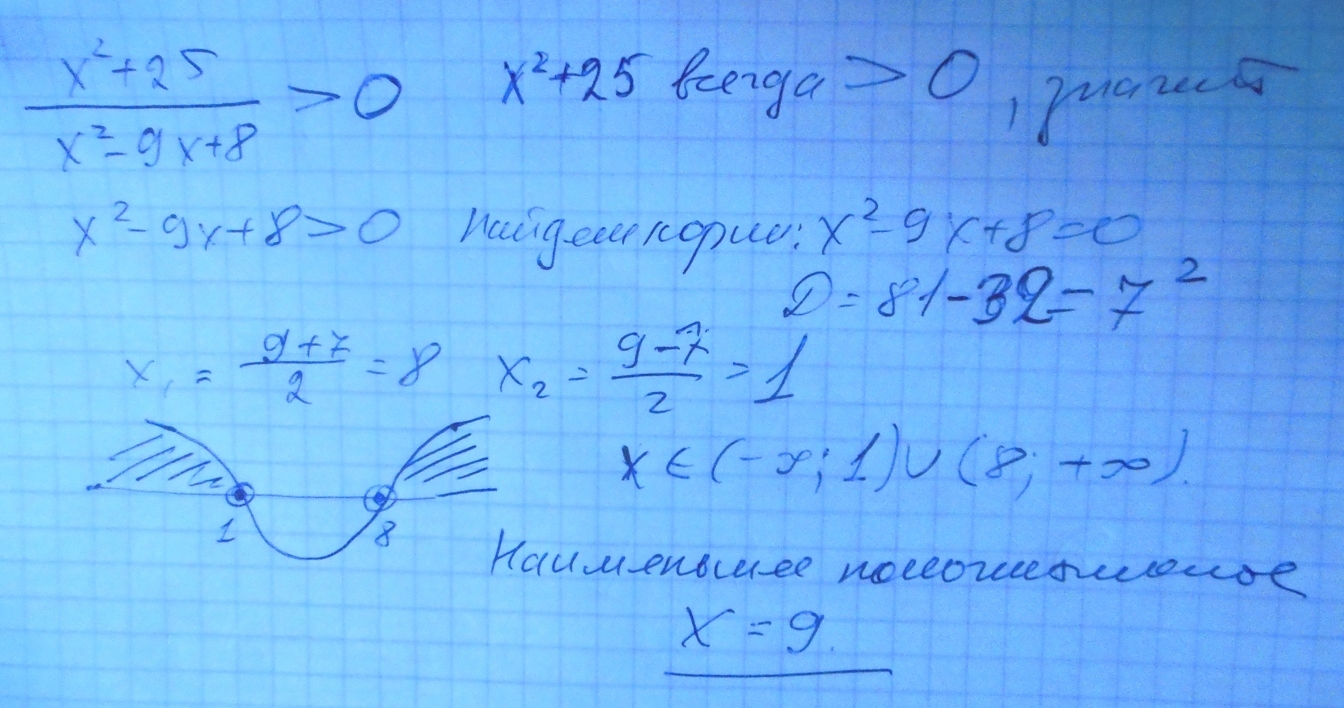 (x²+25)/(x²-9x+8) > 0 x²+25 всегда > 0, значит
x²-9x+8>0 Найдем корни: x²-9x+8=0
D = 81-32 = 7²
x₁ = (9+7)/2 = 8 x₂ = (9-7)/2 = 1
x ∈ (-∞; 1) ∪ (8; +∞).
1 8
Наименьшее положительное
x = 9.